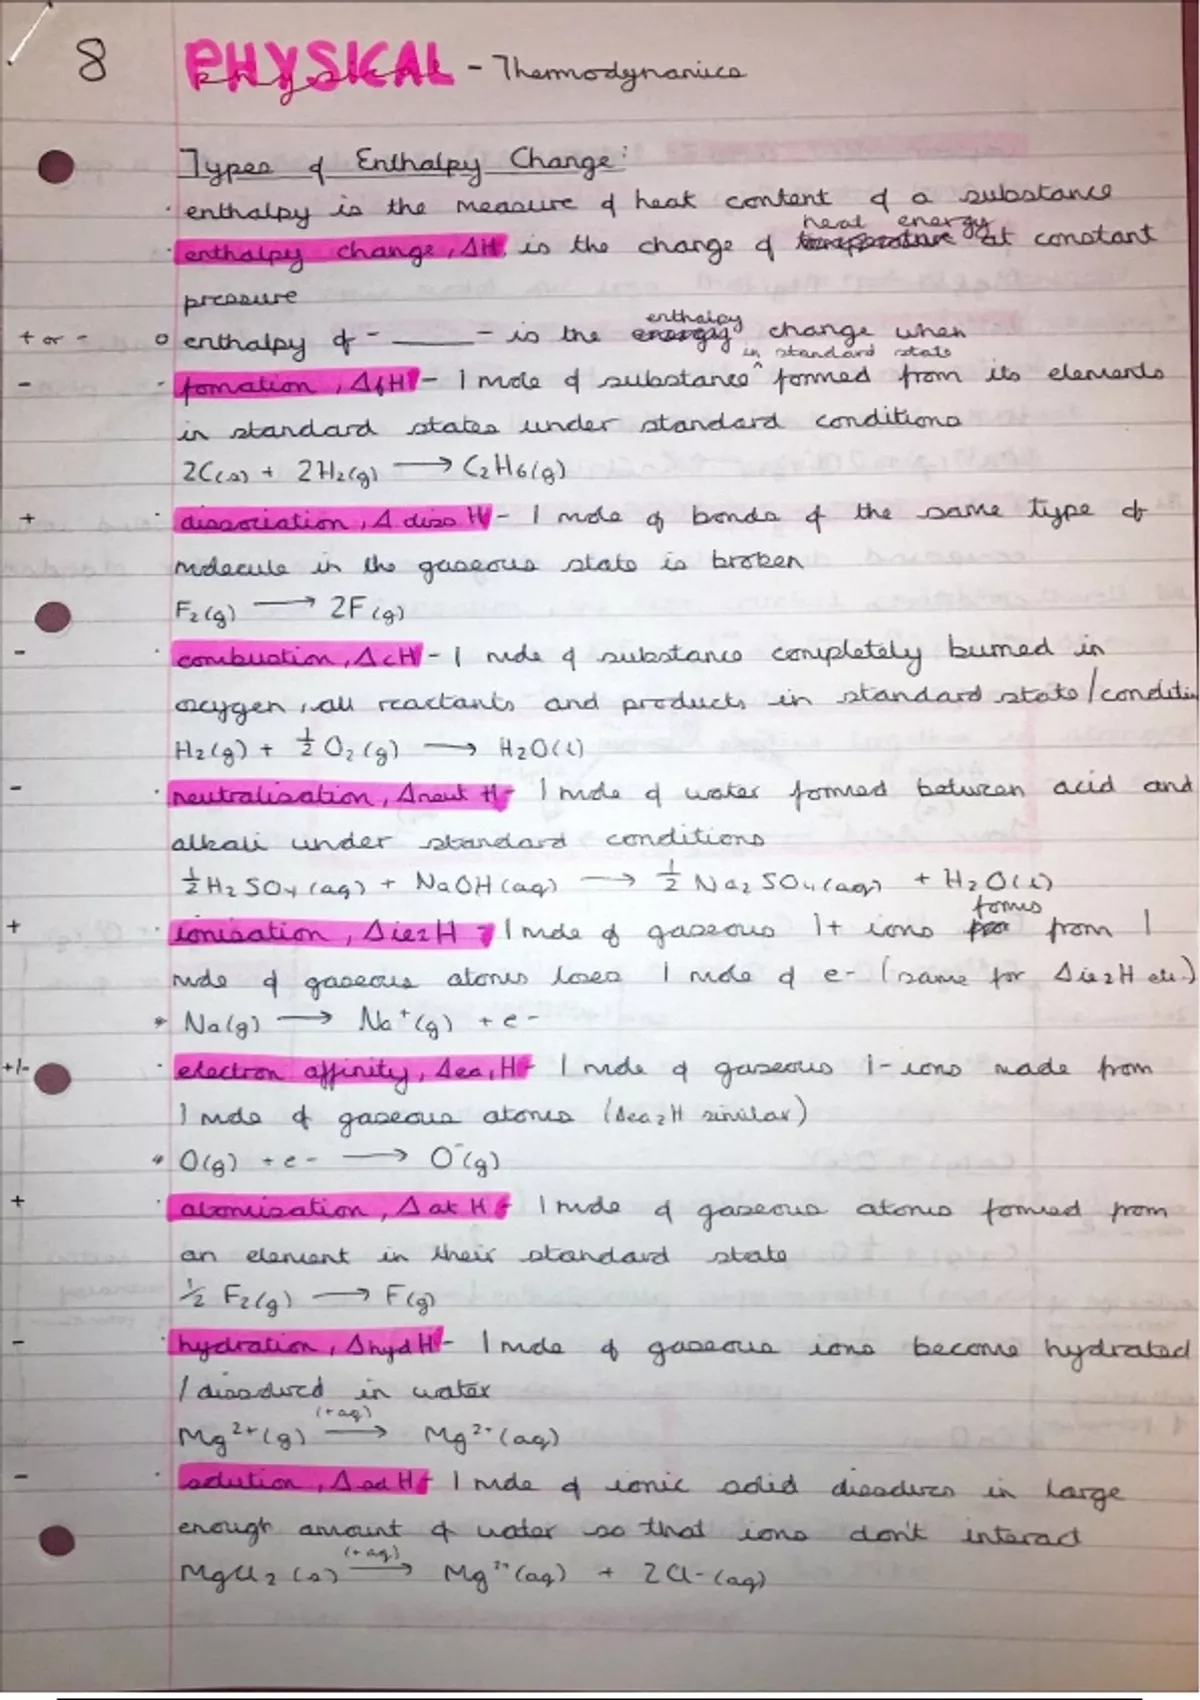 8 PHYSICAL - Thermodynamics
physical
Types of Enthalpy Change:
· enthalpy is the measure of heat content of a substance
heat energy
· enthalpy change, ΔH, is the change of temperature at constant
pressure
enthalpy
+ or - o enthalpy of - ______ - is the energy change when
in standard state
- · formation, ΔfH - 1 mole of substance ^ formed from its elements
in standard states under standard conditions
2C(s) + 2H2(g) → C2H6(g)
+ · dissociation, Δ diss H - 1 mole of bonds of the same type of
molecule in the gaseous state is broken
F2(g) → 2F(g)
- · combustion, ΔcH - 1 mole of substance completely burned in
oxygen, all reactants and products in standard state/conditi
H2(g) + ½ O2(g) → H2O(l)
- · neutralisation, Δneut H - 1 mole of water formed between acid and
alkali under standard conditions
½ H2SO4(aq) + NaOH(aq) → ½ Na2SO4(aq) + H2O(l)
forms
+ · ionisation, Δie2H - 1 mole of gaseous 1+ ions from 1
mole of gaseous atoms loses 1 mole of e- (same for Δie2H etc.)
* Na(g) → Na+(g) + e-
+/- · electron affinity, Δea1H - 1 mole of gaseous 1- ions made from
1 mole of gaseous atoms (Δea2H similar)
* O(g) + e- → O-(g)
+ · atomisation, Δat H - 1 mole of gaseous atoms formed from
an element in their standard state
½ F2(g) → F(g)
- · hydration, ΔhydH - 1 mole of gaseous ions become hydrated
/dissolved in water
(+aq)
Mg2+(g) → Mg2+(aq)
- · solution, Δsol H - 1 mole of ionic solid dissolves in large
enough amount of water so that ions don't interact
(+aq)
MgCl2(s) → Mg2+(aq) + 2Cl-(aq)